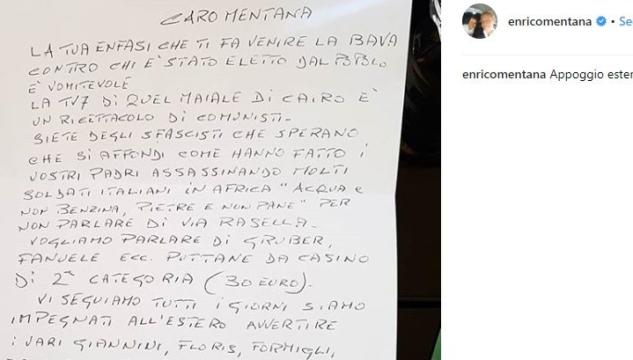 CARO MENTANA
LA TUA ENFASI CHE TI FA VENIRE LA BAVA
CONTRO CHI E' STATO ELETTO DAL POPOLO
È VOMITEVOLE
LA TV7 DI QUEL MAIALE DI CAIRO È
UN RICETTACOLO DI COMUNISTI-
SIETE DEGLI SFASCISTI CHE SPERANO
CHE SI AFFONDI COME HANNO FATTO I
VOSTRI PADRI ASSASSINANDO MOLTI
SOLDATI ITALIANI IN AFRICA "ACQUA E
NON BENZINA, PIETRE E NON PANE" PER
NON PARLARE DI VIA RASELLA-
VOGLIAMO PARLARE DI GRUBER,
FANUELE ECC. PUTTANE DA CASINO
DI 2ª CATEGORIA (30 EURO)-
VI SEGUIAMO TUTTI I GIORNI SIAMO
IMPEGNATI ALL'ESTERO AVVERTIRE
I VARI GIANNINI, FLORIS, FORMIGLI,
enricomentana • Se
enricomentana Appoggio ester